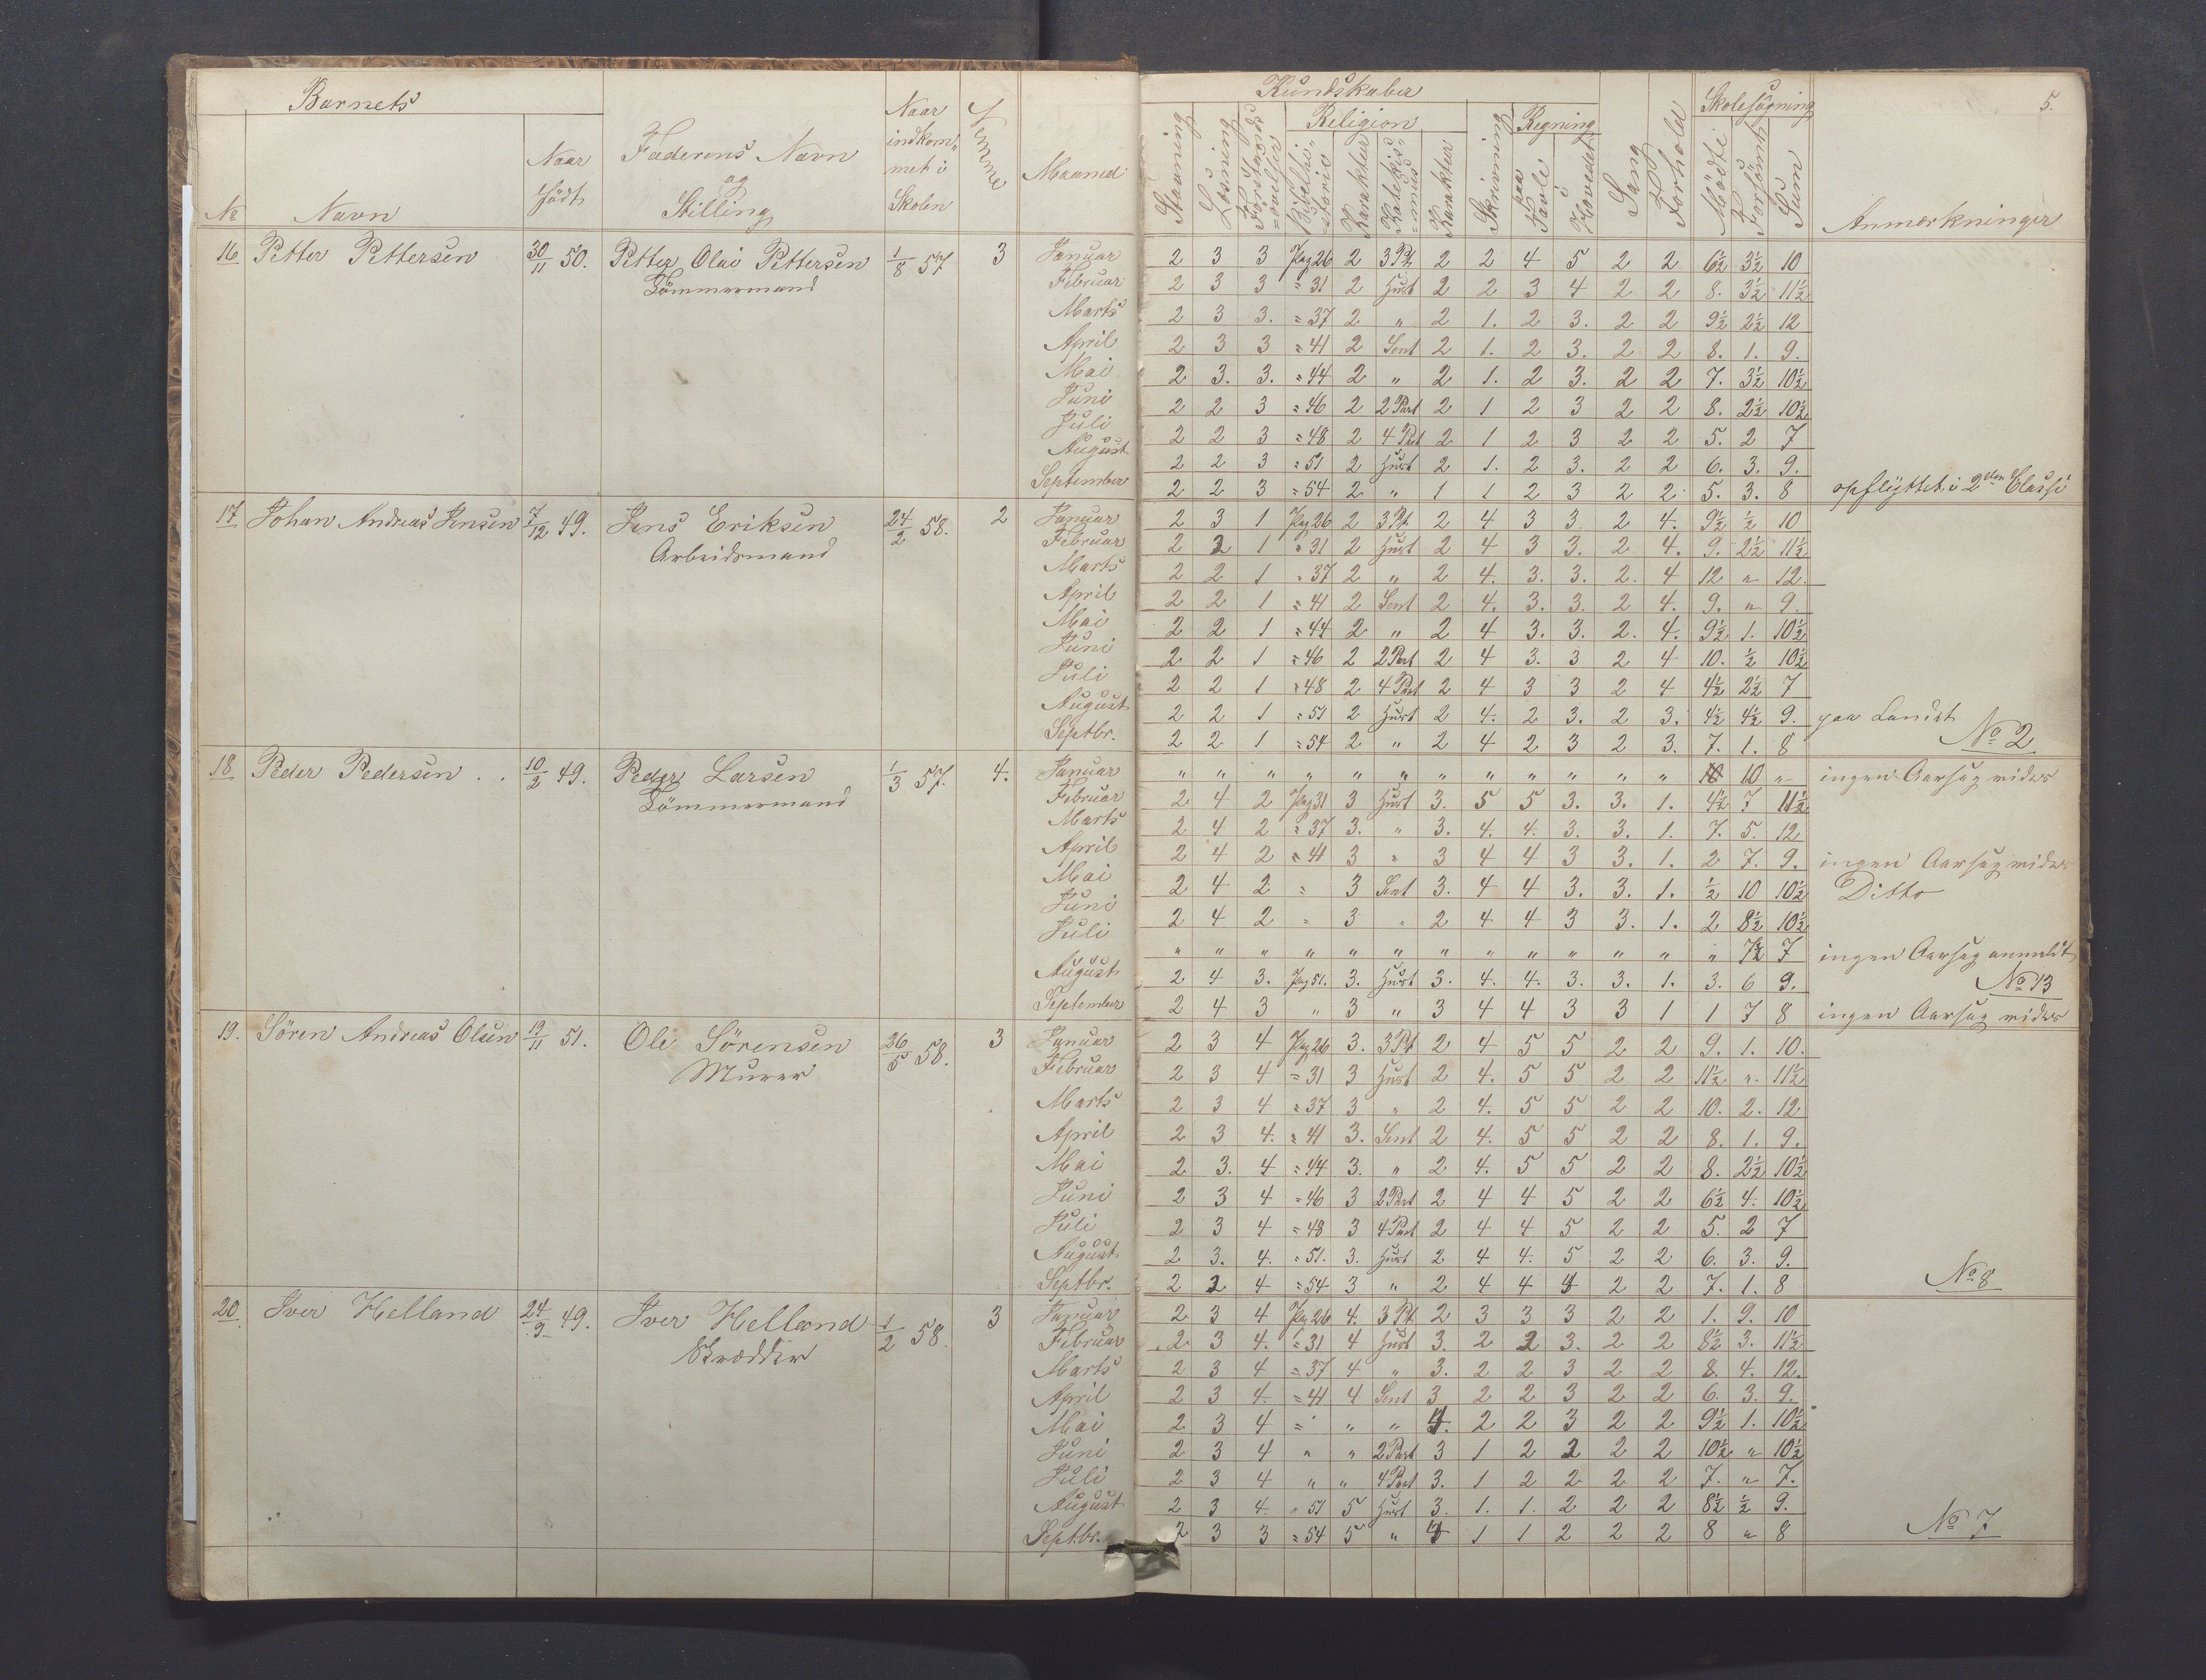 Barnets
Kundskaber
5.
№ Navn Naar født Faderens Navn og Stilling Naar indkommet i Skolen Nemme Maaned Stavning Læsning Forstandsøvelser Religion Bibelhistorie Karakter Katekismus Karakter Skrivning Regning paa Tavle i Hovedet Sang Forhold Skolesøgning Mødte Forsømte Sum Anmærkninger
16 Petter Pettersen 30/11 50. Petter Olai Pettersen 1/8 57 3 Januar 2 3 3 Pag 26 2 3 Pt 2 2 4 5 2 2 6½ 3½ 10
Tömmermand Februar 2 3 3 " 31 2 Hust 2 2 3 4 2 2 8. 3½ 11½
Marts 2 3 3. " 37 2 " 2 1. 2 3. 2 2 9½ 2½ 12
April 2 3 3 " 41 2 Sent 2 1. 2 3. 2 2 8. 1. 9.
Mai 2 3. 3. " 44 2 " 2 1. 2 3. 2 2 7. 3½ 10½
Juni 2 2 3 " 46 2 2 Part 2 1 2 3 2 2 8. 2½ 10½
Juli 2 2 3 " 48 2 4 Part 2 1 2 3 2 2 5. 2 7
August 2 2 3 " 51 2 Hust 2 1. 2 3. 2 2 6. 3. 9.
September 2 2 3 " 54 2 " 1 1 2 3 2 2 5. 3. 8 opflyttet i 2den Classe
17 Johan Andreas Jensen 7/12 49. Jens Eriksen 24/2 58. 2 Januar 2 3 1 Pag 26 2 3 Pt 2 4 3 3. 2 4. 9½ ½ 10
Arbeidsmand Februar 2 2 1 " 31 2 Hust 2 4 3 3. 2 4. 9. 2½ 11½
Marts 2 2 1 " 37 2 " 2 4. 3. 3. 2. 4 12 " 12.
April 2 2 1 " 41 2 Sent 2 4. 3. 3. 2 4. 9. " 9.
Mai 2 2 1 " 44 2 " 2 4 3. 3. 2. 4. 9½ 1. 10½
Juni 2 2 1 " 46 2 2 Part 2 4 3. 3 2 4 10. ½ 10½
Juli 2 2 1 " 48 2 4 Part 2 4 3 3 2 4 4½ 2½ 7
August 2 2 1 " 51 2 Hust 2 4. 2 3. 2 3. 4½ 4½ 9. paa Landet
Septbr. 2 2 1 " 54 2 " 2 4 2 3 2 3. 7. 1. 8 № 2
18 Peder Pedersen . . 10/2 49. Peder Larsen 1/3 57. 4. Januar " " " " " " " " " " " " 10 10 " ingen Aarsag vides
Tömmermand Februar 2 4 2 Pag 31 3 Hust 3. 5 5 3. 3. 1. 4½ 7 11½
Marts 2 4 2 " 37 3. " 3. 4. 4. 3. 3. 1. 7. 5. 12
April 2 4 2 " 41 3 " 3 4 4 3 3. 1. 2 7. 9. ingen Aarsag vides
Mai 2 4 2 " 3 Sent 3. 4 4 3. 3. 1. ½ 10 10½ Ditto
Juni 2 4 2 " 3 " 2 4 4 3 3. 1. 2 8½ 10½
Juli " " " " " " " " " " " " " 7 7 ingen Aarsag anmeldt
August 2 4 3. Pag 51. 3. Hust 3. 4. 4. 3. 3. 1. 3. 6 9. № 13
September 2 4 3 " 3 " 3 4 4 3 3 1 1 7 8 ingen Aarsag vides
19. Sören Andreas Olsen 19/11 51. Ole Sörensen 26/5 58. 3 Januar 2 3 4 Pag 26 3. 3 Pt 2 4 5 5 2 2 9. 1. 10.
Murer Februar 2 3 4 " 31 3 Hust 2 4. 5 5 2 2 11½ ". 11½
Marts 2 3 4 " 37 3 " 2 4. 5 5 2 2 10. 2. 12
April 2 3 4. " 41 3. Sent 2 4. 5 5 2 2 8. 1. 9.
Mai 2 3. 4 " 44 3. " 2 4. 5 5 2 2 8. 2½ 10½
Juni 2 3 4 " 46 3 2 Part 2 4 4 5 2 2 6½ 4. 10½
Juli 2 3 4 " 48 3 4 Part 2 4 4 5 2 2 5. 2 7
August 2 3. 4. " 51. 3. Hust 2 4 4. 5 2 2 6. 3. 9.
Septbr. 2 2 4 " 54 3 " 2 4 4 4 2 2 7. 1. 8 № 8
20 Iver Helland 24/9 49. Iver Helland 1/2 58 3 Januar 2 3 4 Pag 26 4. 3 Pt. 2 3 3 3 2 2 1. 9. 10
Skrædder Februar 2 3 4. " 31 4 Hust 3. 2 2 3. 2 2 8½ 3. 11½
Marts 2 3 4 " 37 4 " 3. 2 2 3 2 2 8. 4. 12.
April 2 3 4. " 41 4 Sent 3 2 2 3 2 2 6. 3. 9.
Mai 2 3 4 " " " 4. 2 2 3 2 2 9½ 1. 10½
Juni 2 3 4 " " 2 Part 3 1 2 2 2 2 10½ " 10½
Juli 2 3 4 " " 4 Part 3. 1 2 2 2 2 7. " 7.
August 2 3 4. " 51 5 Hust 3. 1. 1. 2 2 2 8½ ½ 9.
Septbr. 2 3 3 " 54 5 " 4 1 1 2 2 2 8 " 8 № 7